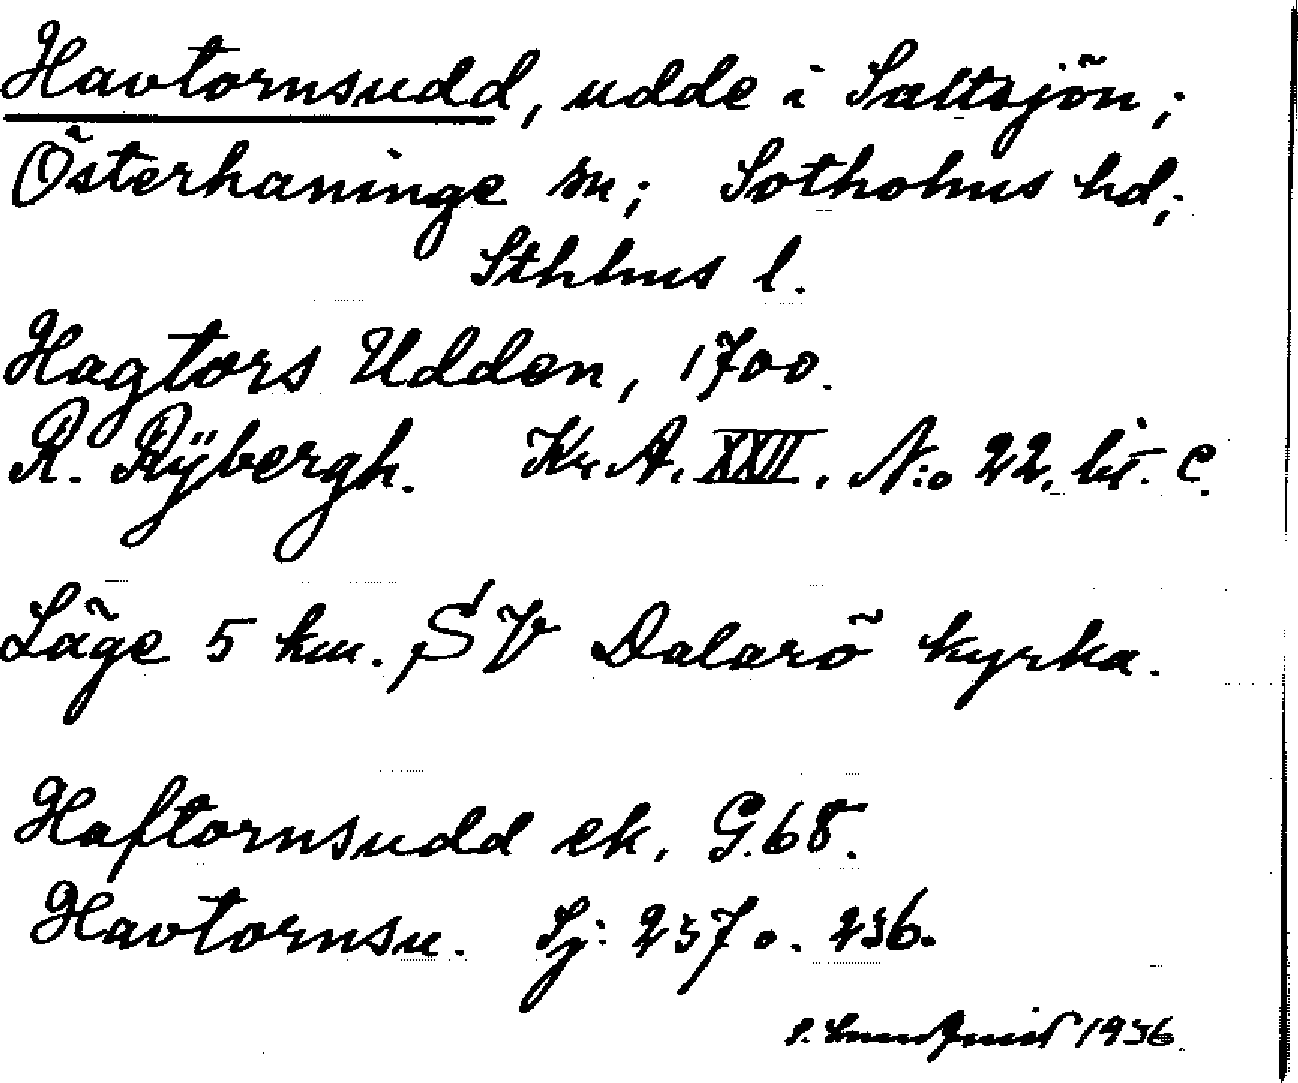 Havtornsudd, udde i Saltsjön;
Österhaninge sn; Sotholms hd;
Sthlms l.
Hagtors Udden, 1700.
R. Rÿbergh. Kr. A. XXII. N:o 22. lit. C.
Läge 5 km. SV Dalarö kyrka.
Haftornsudd ek. G.68.
Havtornsu. Sj: 237 o. 236.
1936